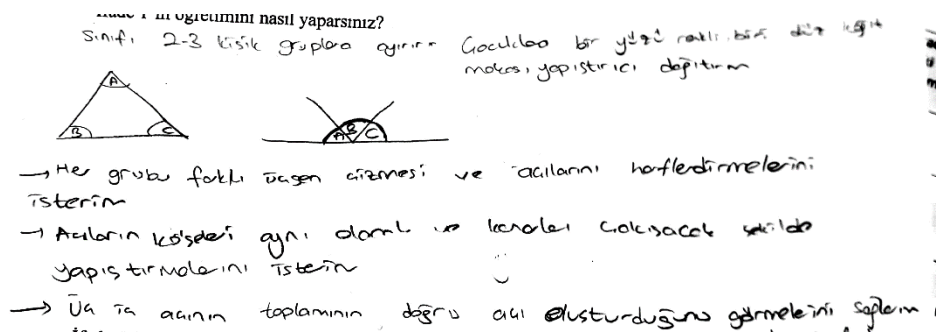 öğretimini nasıl yaparsınız?
Sınıfı 2-3 kişik gruplara ayırırım Çocuklara bir yüzü renkli biri düz kağıt
makas, yapıştırıcı dağıtırım
A
B C
A B C
→ Her grubu farklı üçgen çizmesi ve açılarını harflendirmelerini
isterim
→ Açıların köşeleri aynı olarak ve kenarları çakışacak şekilde
yapıştırmalarını isterim
→ Üç iç açının toplamının doğru açı oluşturduğunu görmelerini sağlarım